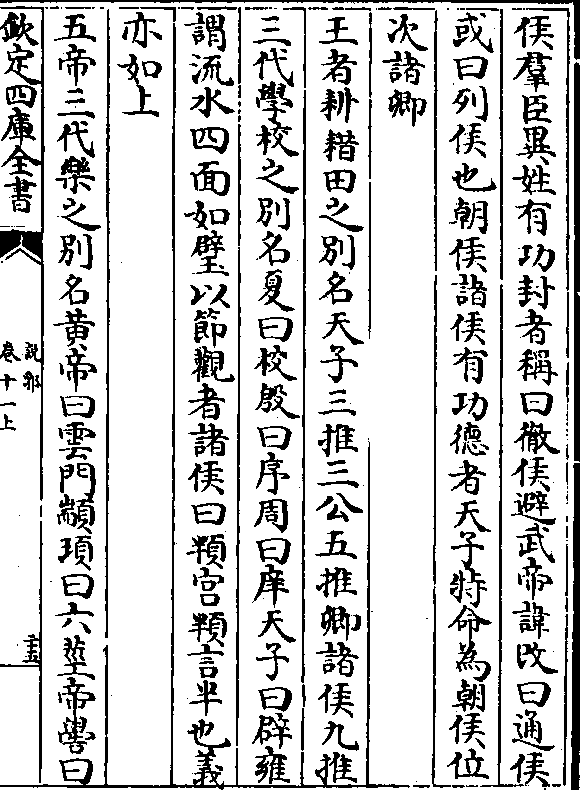 侯羣臣異姓有功封者稱曰徹侯避武帝諱改曰通侯
或曰列侯也朝侯諸侯有功德者天子特命為朝侯位
次諸卿
王者耕耤田之別名天子三推三公五推卿諸侯九推
三代學校之別名夏曰校殷曰序周曰庠天子曰辟雍
謂流水四面如璧以節觀者諸侯曰頖宫頖言半也義
亦如上
五帝三代樂之別名黄帝曰雲門顓頊曰六莖帝嚳曰
欽定四庫全書
說郛
卷十一上